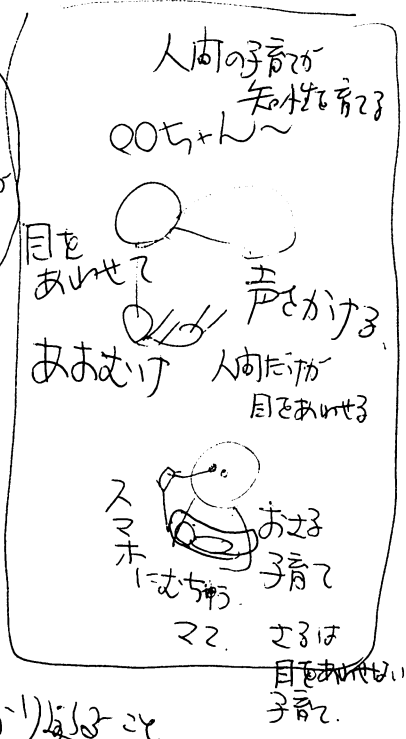 人間の子育てが
知性を育てる
○○ちゃん〜
目を
あわせて
声をかける
あおむけ
人間だけが
目をあわせる
スマホ
にむちゅう
ママ
おさる
子育て
さるは
目をあわせない
子育て.
こと